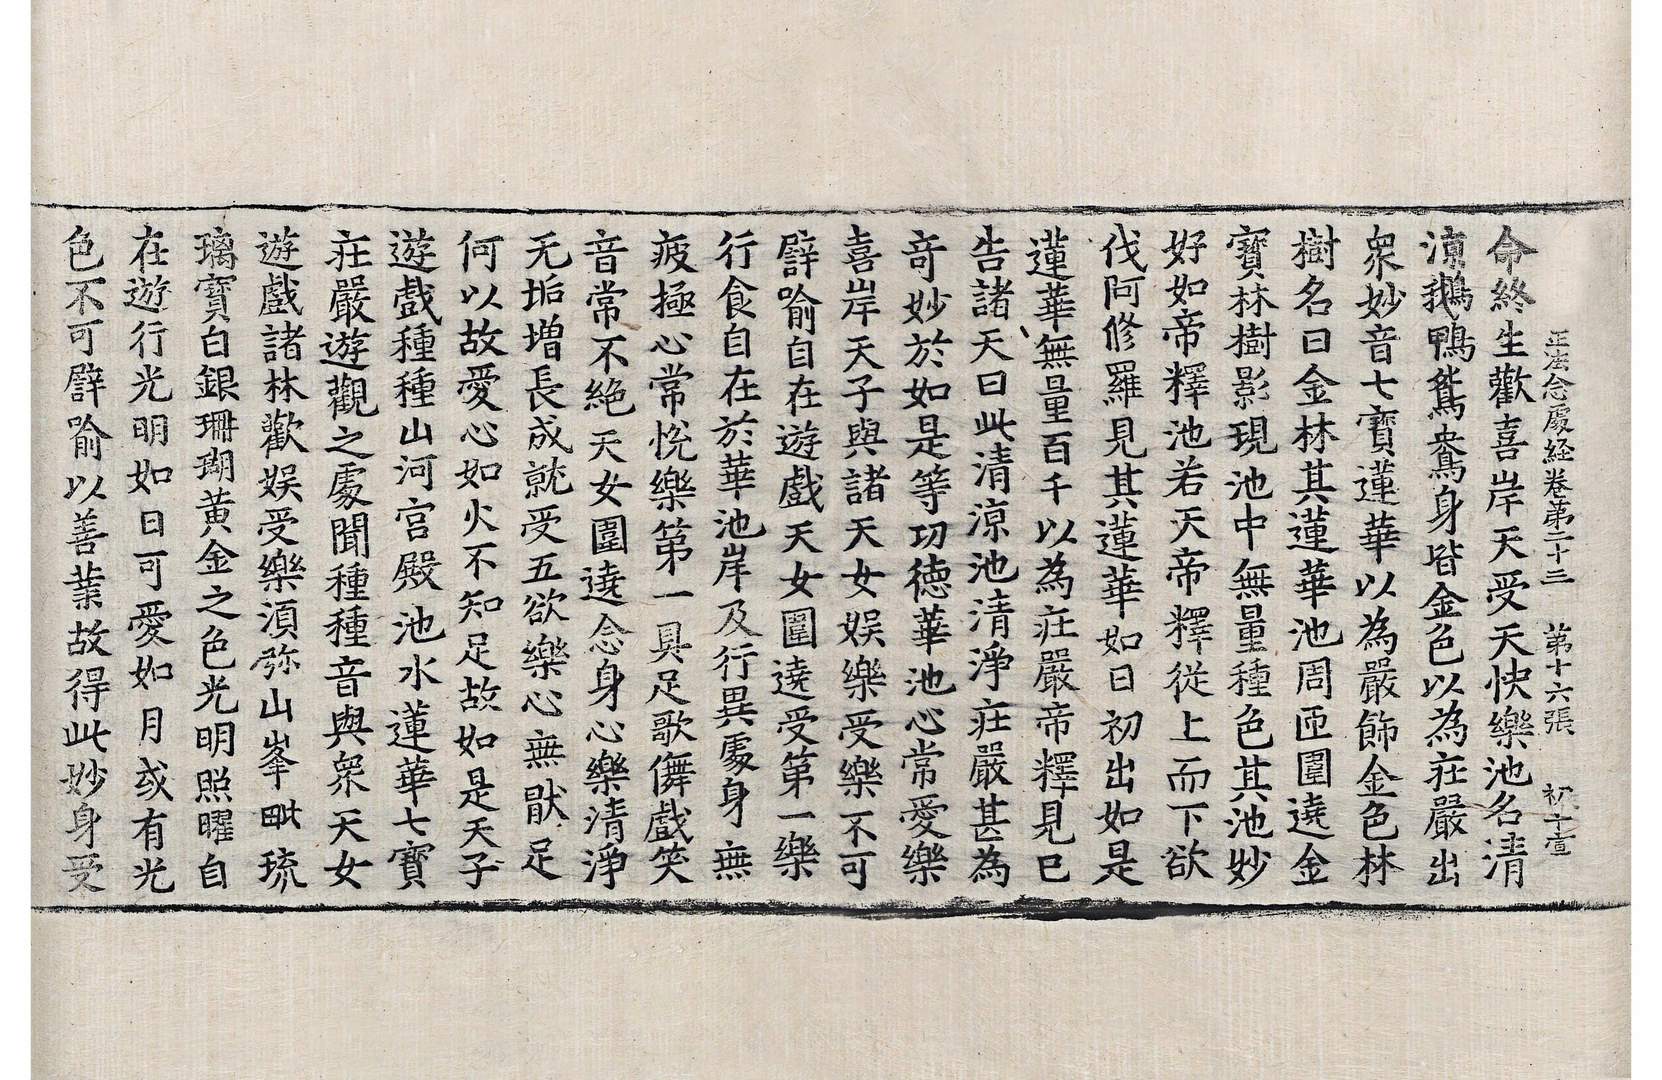 正法念處経卷第二十三 第十六張 初十壹
命終生歡喜岸天受天快樂池名清
涼鵝鴨鴛鴦身皆金色以為莊嚴出
衆妙音七寶蓮華以為嚴飾金色林
樹名曰金林其蓮華池周匝圍遶金
寶林樹影現池中無量種色其池妙
好如帝釋池若天帝釋從上而下欲
伐阿修羅見其蓮華如日初出如是
蓮華無量百千以為莊嚴帝釋見已
告諸天曰此清涼池清淨莊嚴甚為
奇妙於如是等功德華池心常愛樂
喜岸天子與諸天女娛樂受樂不可
譬喻自在遊戲天女圍遶受第一樂
行食自在於華池岸及行異處身無
疲極心常悅樂第一具足歌儛戲笑
音常不絕天女圍遶念身心樂清淨
无垢增長成就受五欲樂心無猒足
何以故愛心如火不知足故如是天子
遊戲種種山河宮殿池水蓮華七寶
莊嚴遊觀之處聞種種音與衆天女
遊戲諸林歡娛受樂湏弥山峯毗琉
璃寶白銀珊瑚黃金之色光明照曜自
在遊行光明如日可愛如月或有光
色不可譬喻以善業故得此妙身受